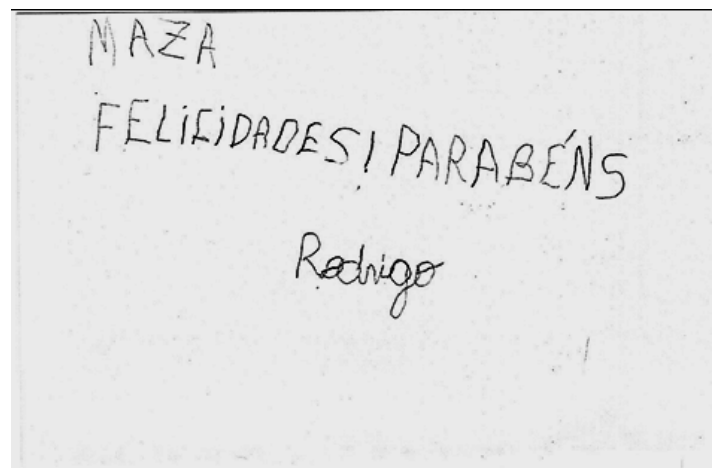 MAZA
FELICIDADES! PARABÉNS
Rodrigo